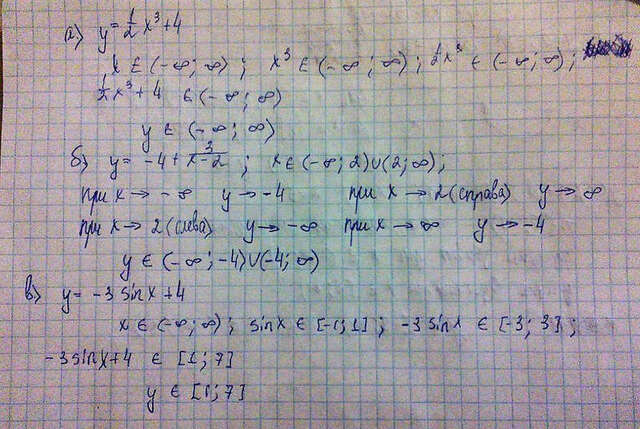 а) y = 1/2 x³ + 4
x ∈ (-∞; ∞); x³ ∈ (-∞; ∞); 1/2 x³ ∈ (-∞; ∞);
1/2 x³ + 4 ∈ (-∞; ∞)
y ∈ (-∞; ∞)
б) y = -4 + 3/(x-2); x ∈ (-∞; 2)∪(2; ∞);
при x → -∞ y → -4 при x → 2 (справа) y → ∞
при x → 2 (слева) y → -∞ при x → ∞ y → -4
y ∈ (-∞; -4)∪(-4; ∞)
в) y = -3 sin x + 4
x ∈ (-∞; ∞); sin x ∈ [-1; 1]; -3 sin x ∈ [-3; 3];
-3 sin x + 4 ∈ [1; 7]
y ∈ [1; 7]